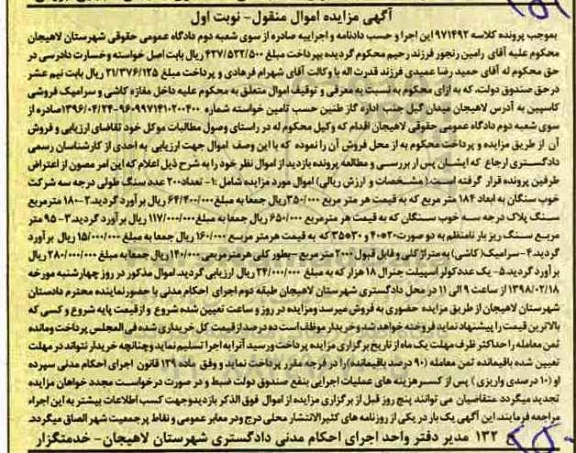 آگهی مزایده اموال منقول- نوبت اول
بموجب پرونده کلاسه ۹۷۱۴۹۲ این اجرا و حسب دادنامه و اجراییه صادره از سوی شعبه دوم دادگاه عمومی حقوقی شهرستان لاهیجان
محکوم علیه آقای رامین رنجور فرزند رحیم محکوم گردیده بپرداخت مبلغ ۴۲۷/۵۳۲/۵۰۰ ریال بابت اصل خواسته وخسارت دادرسی در
حق محکوم له آقای حمید رضا عمیدی فرزند قدرت اله با وکالت آقای شهرام فرهادی و پرداخت مبلغ ۲۱/۳۷۶/۱۲۵ ریال بابت نیم عشر
در حق صندوق دولت، که به ازای محکوم به نسبت به معرفی و توقیف اموال متعلق به محکوم علیه داخل مغازه کاشی و سرامیک فروشی
کاسپین به آدرس لاهیجان میدان گیل جنب اداره گاز طنین حسب تامین خواسته شماره ۹۶۰۹۹۷۱۴۱۰۲۰۰۴۰۰-۱۳۹۶/۰۴/۲۴صادره از
سوی شعبه دوم دادگاه عمومی حقوقی لاهیجان اقدام که وکیل محکوم له در راستای وصول مطالبات موکل خود تقاضای ارزیابی و فروش
آن از طریق مزایده و پرداخت محکوم به از محل فروش آن را نموده که با این وصف اموال جهت ارزیابی به احدی از کارشناسان رسمی
دادگستری ارجاع که ایشان پس از بررسی و مطالعه پرونده بازدید از اموال نظر خود را به شرح ذیل اعلام که این امر مصون از اعتراض
طرفین پرونده قرار گرفته است.(مشخصات و ارزش ریالی) اموال مورد مزایده شامل :۱- تعداد ۲۰۰ عدد سنگ طولی درجه سه شرکت
خوب سنگان به ابعاد ۱۸۴ متر مربع که به قیمت هر متر مربع ۳۵۰/۰۰۰ریال جمعا به مبلغ ۶۴/۴۰۰/۰۰۰ ریال برآورد گردید.۲-۱۸۰ مترمربع
سنگ پلاک درجه سه خوب سنگان که به قیمت هر مترمربع ۶۵۰/۰۰۰ ریال جمعا به مبلغ ۱۱۷/۰۰۰/۰۰۰ ریال برآورد گردید.۳- ۹۵ متر
مربع سنگ ریز بار نامنظم به دو صورت ۲۰*۴۰ و ۳۰*۳۵ که به قیمت هرمتر مربع ۱۶۰/۰۰۰ ریال جمعا به مبلغ ۱۵/۰۰۰/۰۰۰ ریال برآورد
گردید.۴-سرامیک( کاشی) به متراژ کلی و قابل قبول ۲۰۰۰ متر مربع -بطور کلی هر مترمربعی ۱۴۰/۰۰۰ ریال جمعا به مبلغ ۲۸۰/۰۰۰/۰۰۰ ریال
برآورد گردید.۵- یک عدد کولر اسپیلت جنرال ۱۸ هزار که به مبلغ ۲۴/۰۰۰/۰۰۰ ریال ارزیابی گردید. اموال مذکور در روز چهارشنبه مورخه
۱۳۹۸/۰۲/۱۸ از ساعت ۹ الی ۱۱ در محل دادگستری شهرستان لاهیجان طبقه دوم اجرای احکام مدنی با حضور نماینده محترم دادستان
شهرستان لاهیجان از طریق مزایده حضوری به فروش میرسد ومزایده در روز و ساعت تعیین شده شروع و از قیمت پایه شروع و کسی که
بالاترین قیمت را پیشنهاد نماید فروخته خواهد شد و خریدار موظف است ده درصد از قیمت کل خریداری شده فی المجلس پرداخت ومانده
ثمن معامله را حداکثر ظرف مهلت یک ماه از تاریخ برگزاری مزایده پرداخت و رسید آنرا به اجرا تسلیم نماید وچنانچه خریدار نتواند در مهلت
تعیین شده باقیمانده ثمن معامله (۹۰ درصد باقیمانده)را در فرجه مقرر پرداخت نماید و وفق ماده ۱۳۹ قانون اجرای احکام مدنی سپرده
او (۱۰ درصدی واریزی ) پس از کسر هزینه های عملیات اجرایی بنفع صندوق دولت ضبط و در صورت درخواست مجدد خواهان مزایده
تجدید میگردد متقاضیان می توانند پنج روز قبل از برگزاری مزایده از اموال فوق الذکر بازدید وجهت کسب اطلاعات بیشتر به این اجراء
مراجعه فرمایند. این آگهی یک بار در یکی از روزنامه های کثیرالانتشار محلی درج ودر معابر عمومی و نقاط پرجمعیت شهر الصاق میگردد.
۱۳۲ مدیر دفتر واحد اجرای احکام مدنی دادگستری شهرستان لاهیجان- خدمتگزار